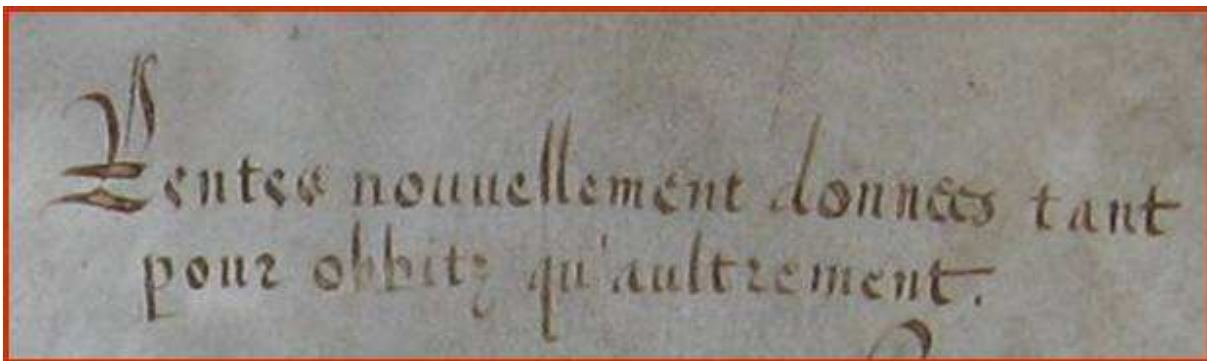 Rentes nouuellement données tant
pour obbitz qu'aultrement.